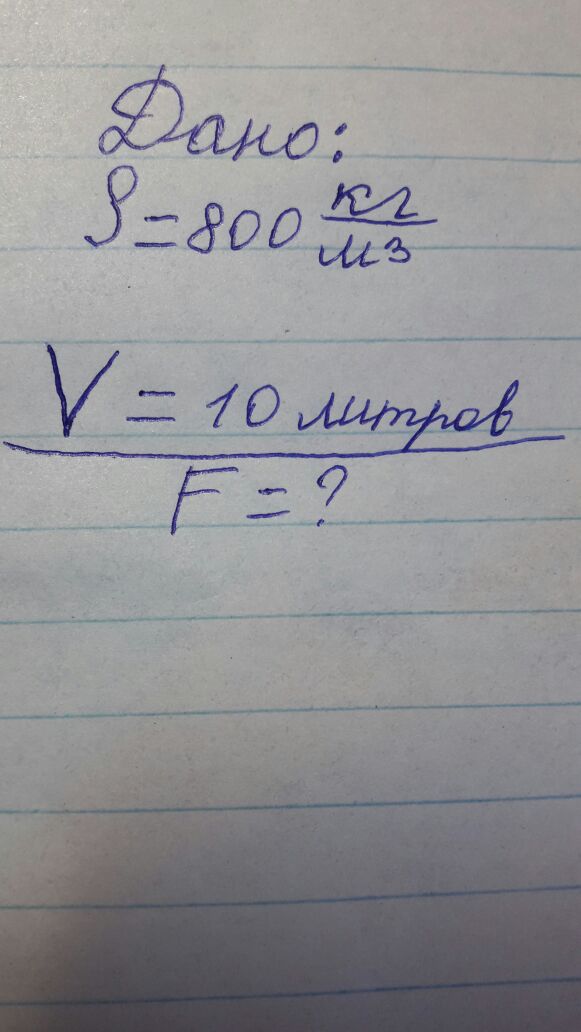 Дано:
ρ = 800 кг/м3
V = 10 литров
F = ?